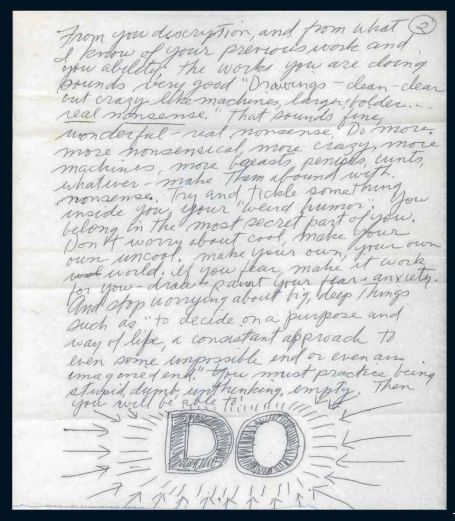 From you description, and from what ②
I know of your previous work and
you ability; the works you are doing
sounds very good "Drawings - clean - clear
but crazy like machines, larger, bolder....
real nonsense." That sounds fine,
wonderful - real nonsense. Do more.
more nonsensical, more crazy, more
machines, more breasts, penises, cunts,
whatever - make them abound with
nonsense. Try and tickle something
inside you, your "weird humor." You
belong in the most secret part of you.
Don't worry about cool, make your
own uncool. make your own, your own
world. If you fear, make it work
for you - draw & paint your fear & anxiety.
And stop worrying about big, deep things
such as "to decide on a purpose and
way of life, a consistant approach to
even some impossible end or even an
imagined end." You must practice being
stupid, dumb, unthinking, empty. Then
you will be able to!
DO